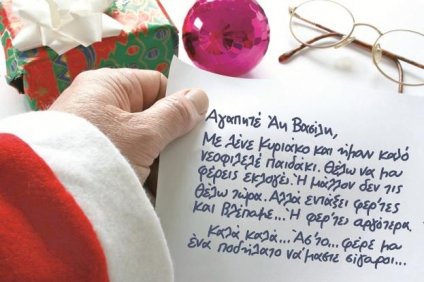 Αγαπητέ Άη Βασίλη,
Με λένε Κυριάκο και ήμαν καλό
νεοφιλελέ παιδάκι. Θέλω να μου
φέρεις εκλογές. Ή μάλλον δεν τις
θέλω τώρα. Αλλά εντάξει φέρ'τες
και βλέπαμε... Ή φέρ'τες αργότερα.
Καλά καλά... Άσ'το... φέρε μου
ένα ποδήλατο να'μαστε σίγουροι...